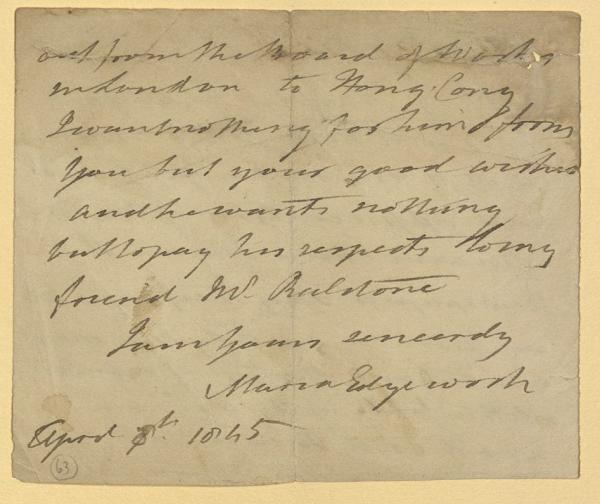 out from the Board of Works
in London to Hong Cong
I want nothing for him from
you but your good wishes
and he wants nothing
but to pay his respects to my
friend Mr. Ralstone
I am yours sincerely
Maria Edgeworth
April 8th 1845
63